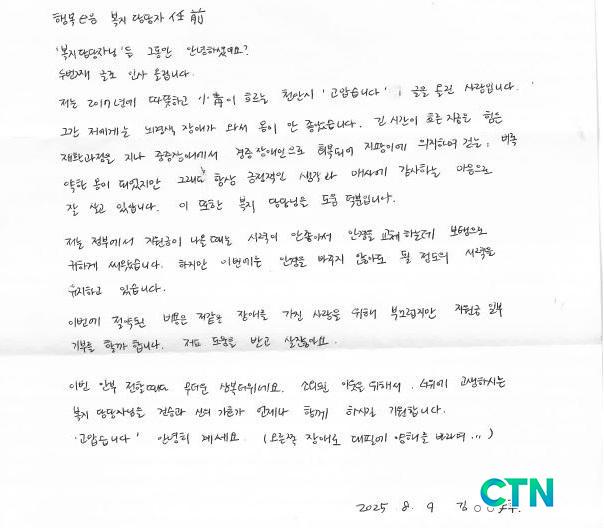 행복e음 복지 담당자 任前
'복지담당자님'들 그동안 안녕하셨어요?
두번째 글로 인사 올립니다.
저는 2017년에 따뜻하고 小靑이 흐르는 천안시 '고맙습니다', 글을 올린 사람입니다.
그간 저에게는 뇌경색 장애가 와서 몸이 안 좋았습니다. 긴 시간이 흐른 지금은 힘든
재활과정을 지나 중증장애에서 경증장애인으로 회복되어 지팡이에 의지하여 걷는, 비록
약한 몸이 되었지만 그래도 항상 긍정적인 생각과 매사에 감사하는 마음으로
잘 살고 있습니다. 이 또한 복지 담당님을 도움 덕분입니다.
저는 정부에서 지원금이 나올때는 시력이 안좋아서 안경을 교체하는데 보탬으로
귀하게 써왔습니다. 하지만 이번에는 안경을 바꾸지 않아도 될 정도의 시력을
유지하고 있습니다.
이번에 절약된 비용은 저같은 장애를 가진 사람을 위해 부끄럽지만 지원금 일부
기부를 할까 합니다. 저도 도움을 받고 살잖아요.
이번 안부 전할때도 무더운 삼복더위에요. 소외된 이웃을 위해서, 노고에 고생하시는
복지 담당자님을 건승과 신의 가호가 언제나 함께 하시길 기원합니다.
'고맙습니다' 안녕히 계세요. (오른쪽 장애로 대필에 양해를 바라며...)
2025 8. 9 김○○
CTN